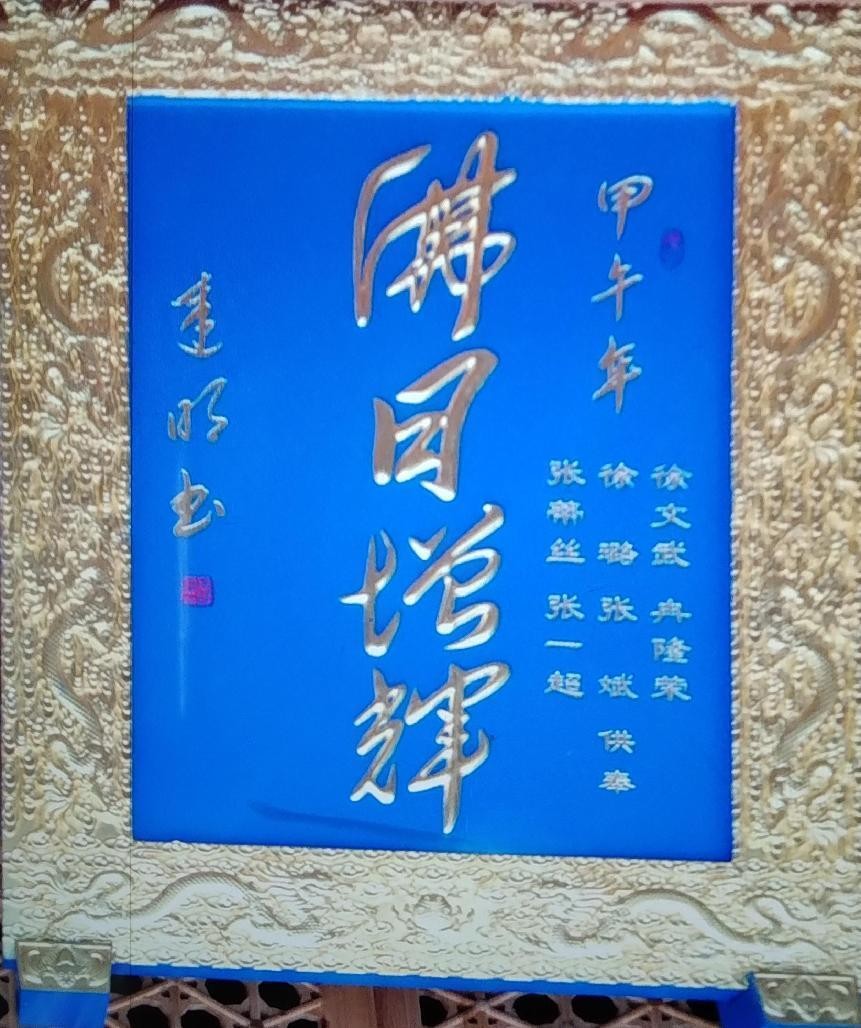 甲午年
徐文武 冉隆荣
徐璐 张斌 供奉
张丝 张一超
佛日增輝
明书